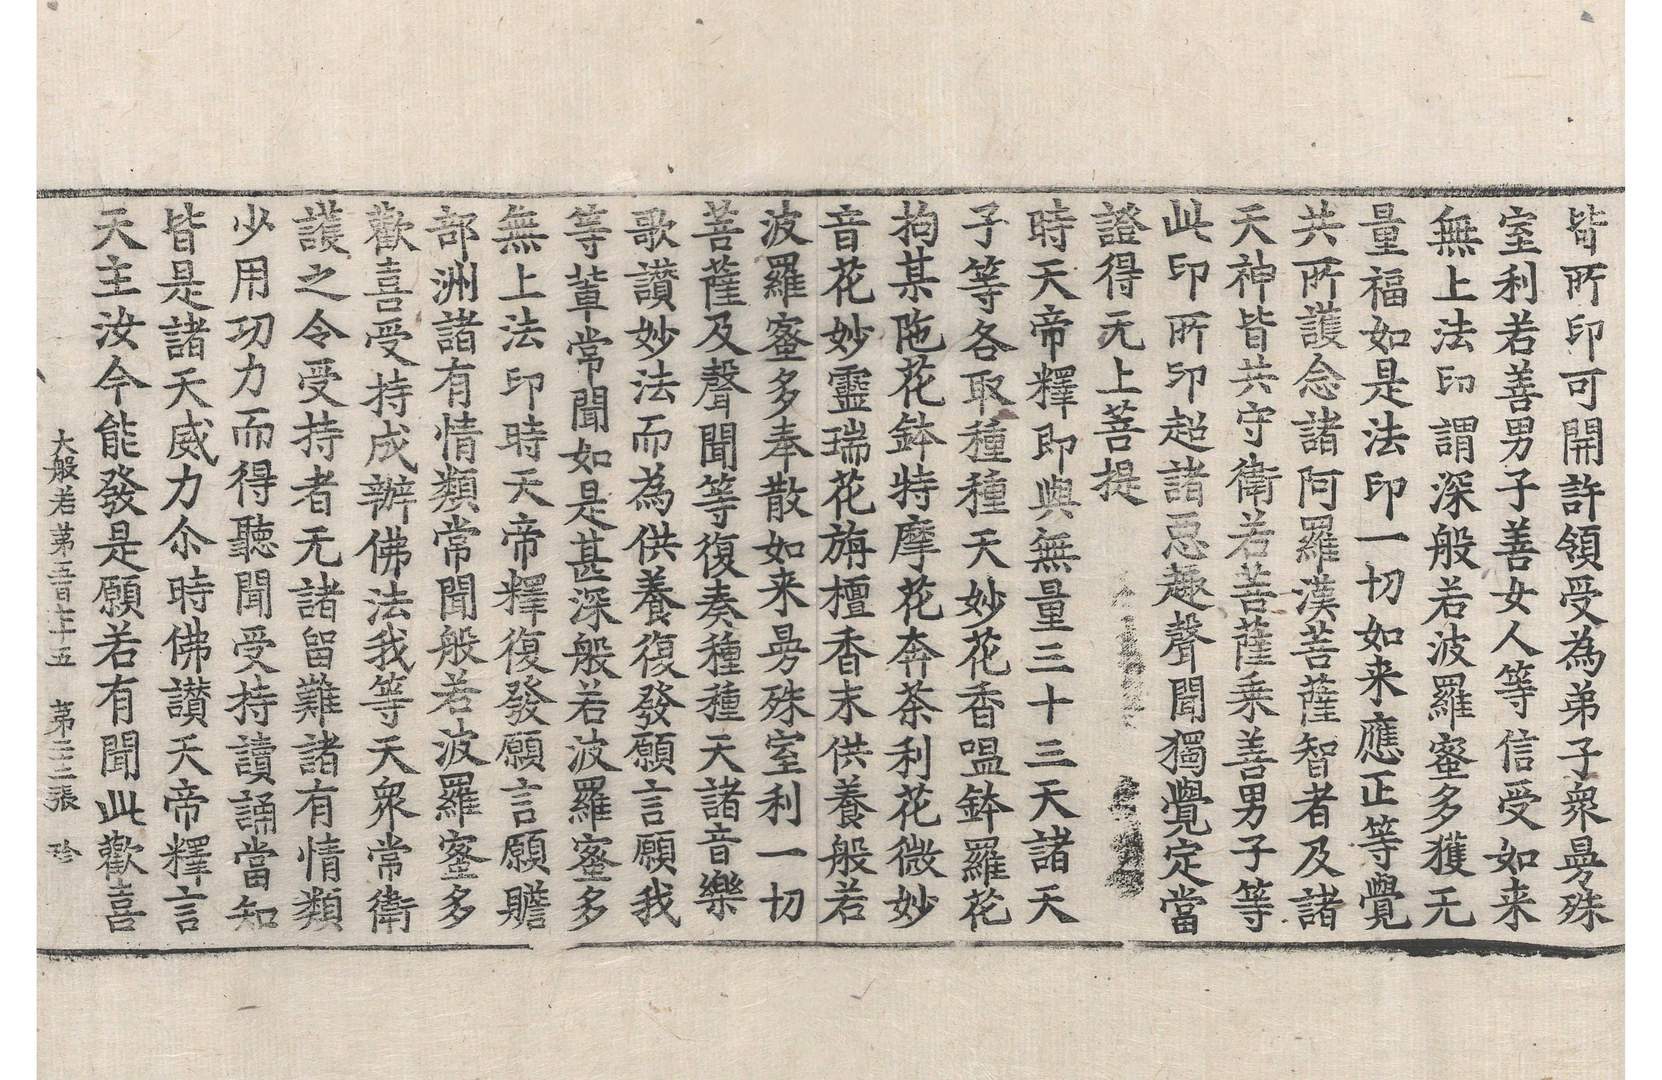 皆所印可開許領受為弟子衆曼殊
室利若善男子善女人等信受如来
無上法印謂深般若波羅蜜多獲无
量福如是法印一切如来應正等覺
共所護念諸阿羅漢菩薩智者及諸
天神皆共守衛若菩薩乘善男子等
此印所印超諸惡趣聲聞獨覺定當
證得无上菩提
時天帝釋即與無量三十三天諸天
子等各取種種天妙花香嗢鉢羅花
拘某陁花鉢特摩花奔荼利花微妙
音花妙靈瑞花旃檀香末供養般若
波羅蜜多奉散如来曼殊室利一切
菩薩及聲聞等復奏種種天諸音樂
歌讃妙法而為供養復發願言願我
等輩常聞如是甚深般若波羅蜜多
無上法印時天帝釋復發願言願贍
部洲諸有情類常聞般若波羅蜜多
歡喜受持成辦佛法我等天衆常衛
護之令受持者无諸留難諸有情類
少用功力而得聽聞受持讀誦當知
皆是諸天威力尒時佛讃天帝釋言
天主汝今能發是願若有聞此歡喜
大般若第五百七十五 第二十二張 珍